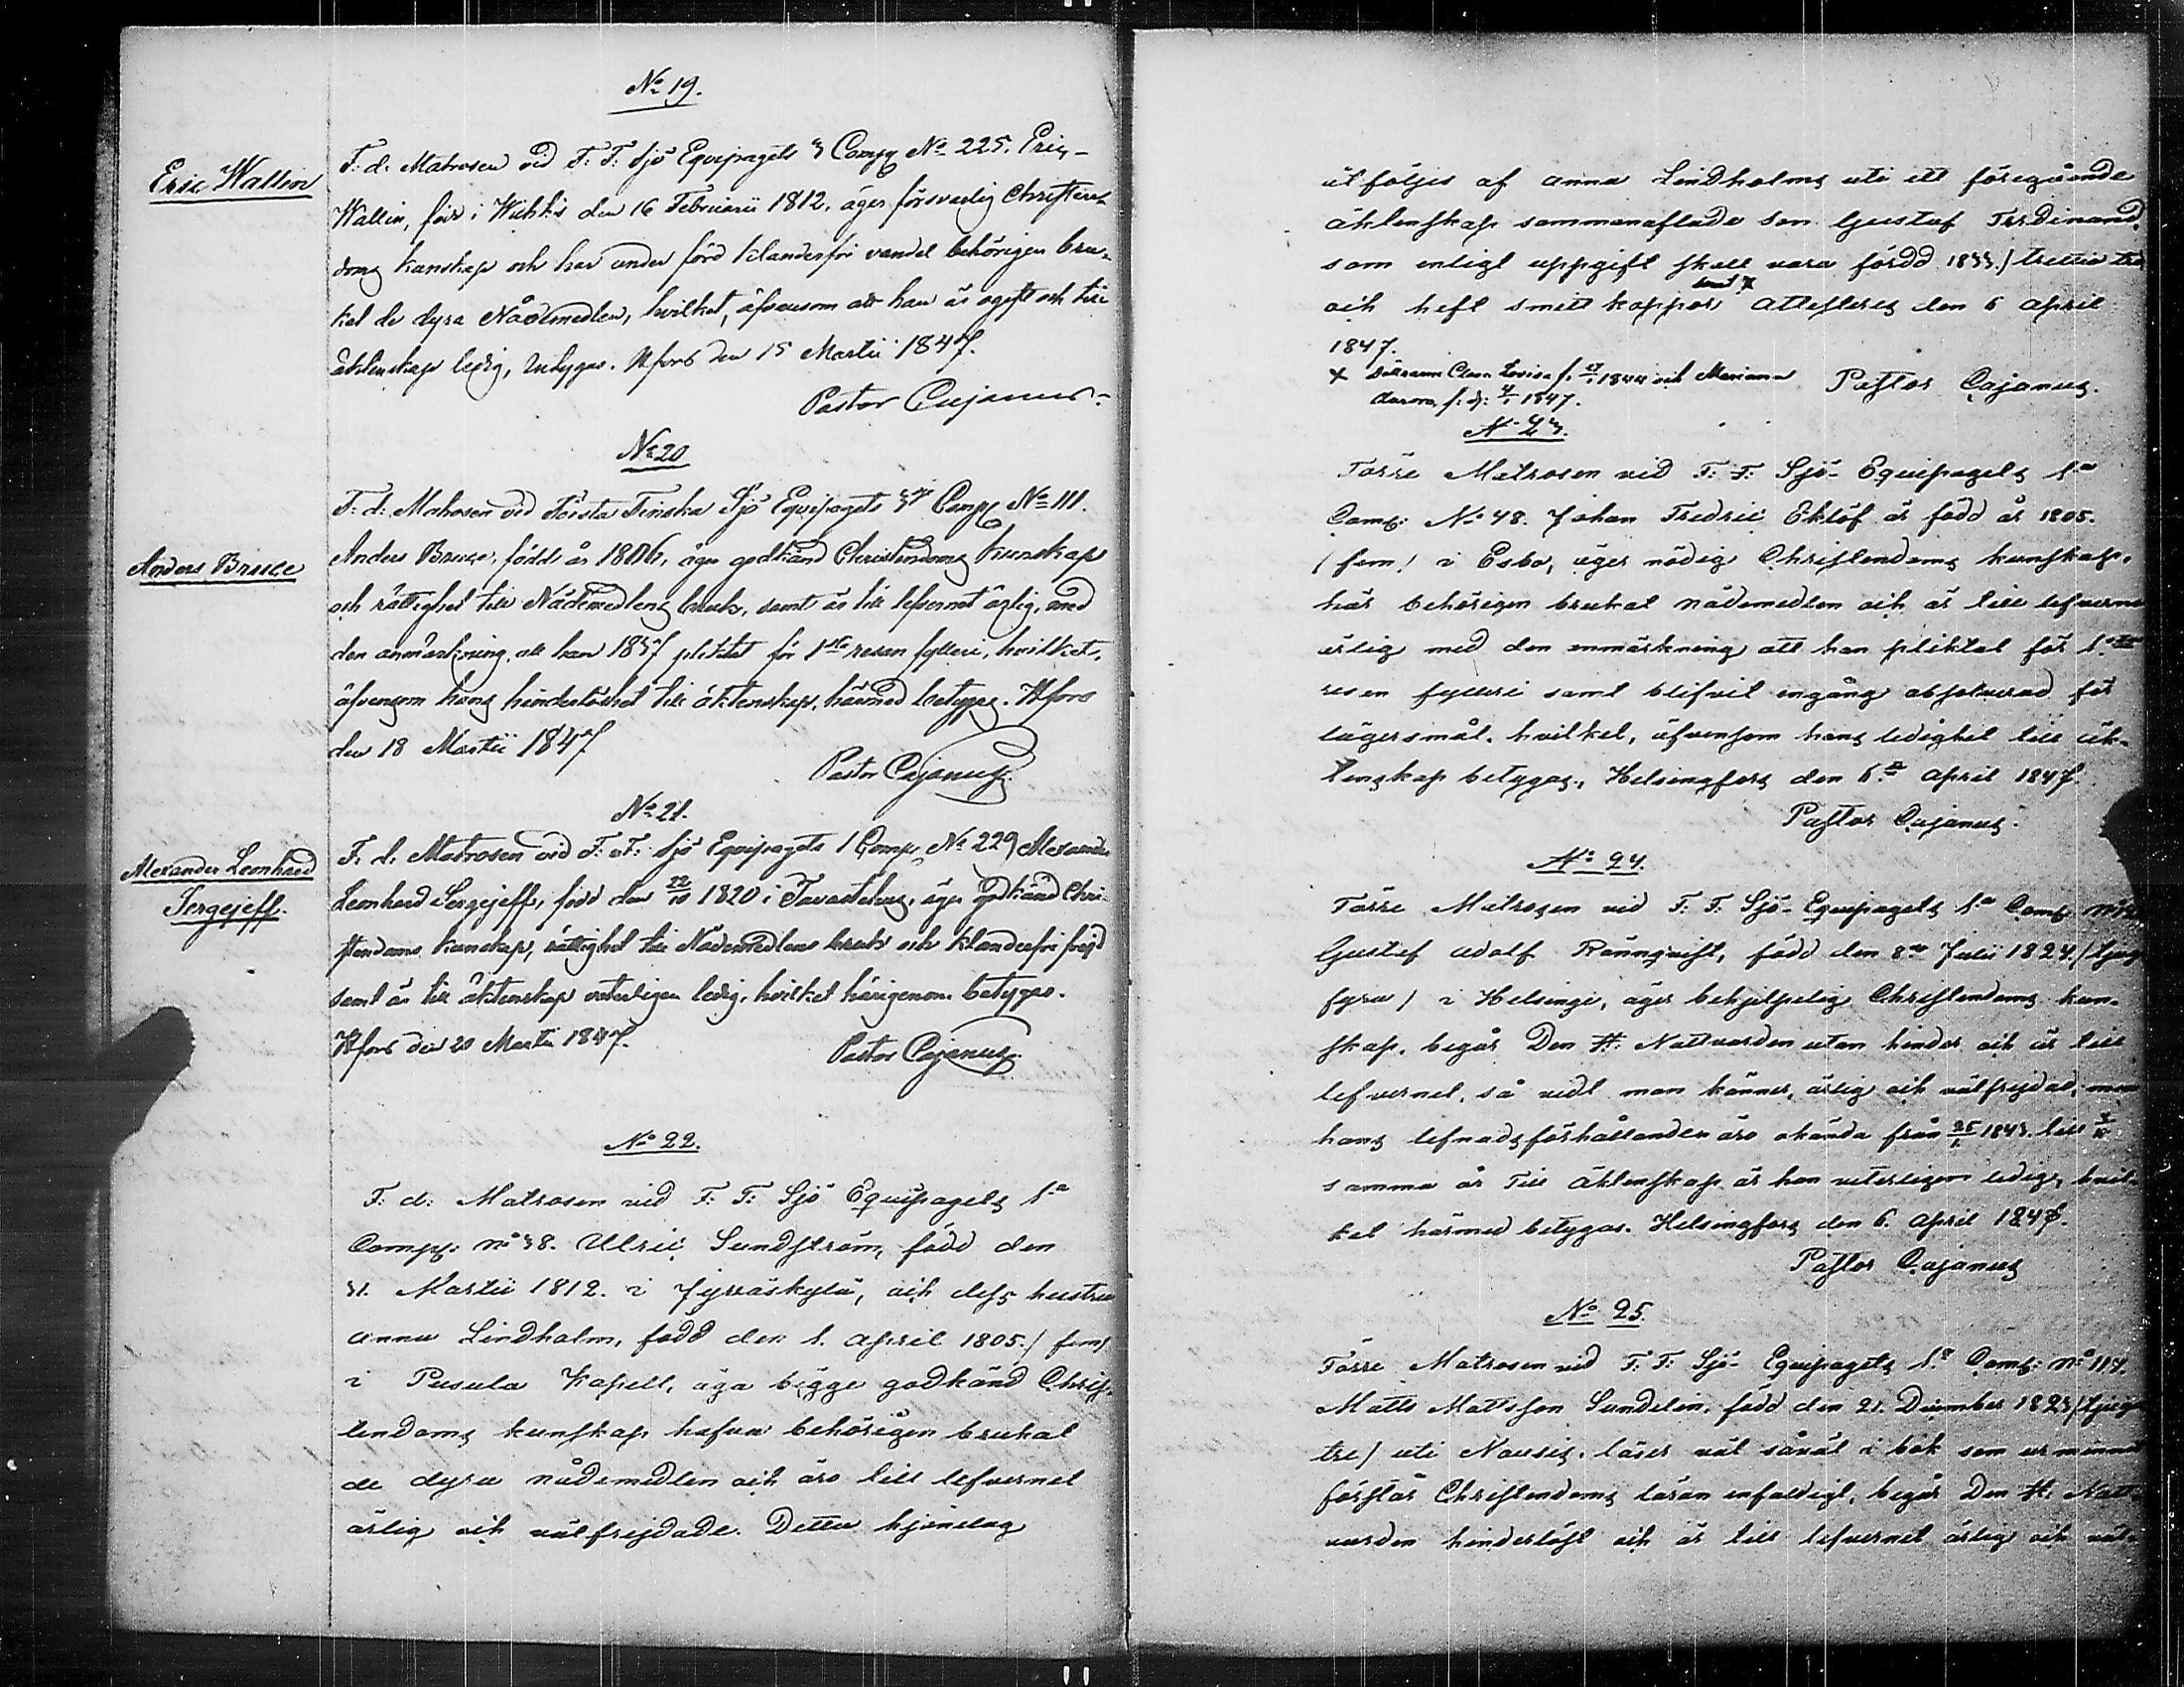 No 19.
Eric Wallin
F: d: Matrosen vid F: F: Sjö Equipagets 3 Comp No 225. Eric
Wallin, född i Wichtis den 16 Februarii 1812, äger försvarlig Christen-
doms kunskap och har under förd klanderfri vandel behörigen bru-
kat de dyra Nådemedlen, hvilket, äfvensom att han är ogift och till
äktenskap ledig, betygas. Hfors den 15 Martii 1847.
Pastor Cajanus.
No 20
Anders Bruce
F: d: Matrosen vid Första Finska Sjö Equipagets 3je Comp No 111.
Anders Bruce, född år 1806, äger godkänd Christendoms kunskap
och rättighet till Nådemedlens bruk, samt är till lefvernet ärlig, med
den anmärkning, att han 1837 pliktat för 1sta resan fylleri, hvilket,
äfvensom hans hinderlöshet till äktenskap, härmed betygas. Hfors
den 18 Martii 1847
Pastor Cajanus.
No 21.
Alexander Leonhard
Sergejeff.
F: d: Matrosen vid F: F: Sjö Equipagets 1 Comp No 229 Alexander
Leonhard Sergejeff, född den 22/10 1820 i Tavastehus, äger godkänd Chri-
stendoms kunskap, rättighet till Nådemedlens bruk och klanderfri frejd
samt är till äktenskap veterligen ledig, hvilket härigenom betygas.
Hfors den 20 Martii 1847.
Pastor Cajanus.
No 22.
F: d: Matrosen vid F: F: Sjö Equipagets 1a
Comp: No 38. Ulric Sundström, född den
31. Martii 1812. i Jyväskylä, och dess hustru
Anna Lindholm, född den 1. April 1805./ fem/
i Pusula Kapell, äga bägge godkänd Chris-
tendoms kunskap hafva behörigen brukat
de dyra nådemedlen och äro till lefvernet
ärlig och välfrejdade. Detta hjonelag
åtföljes af Anna Lindholms uti ett föregående
äktenskap sammanaflade son Gustaf Ferdinand,
som enligt uppgift skall vara född 1833./ trettio tre
och haft smitt koppor samt x Attesteras den 6 April
1847.
x döttrarna Clara Lovisa f. 1844 och Mariana
Aurora, f: d: 1847.
Pastor Cajanus.
No 23.
Förre Matrosen vid F: F: Sjö-Equipagets 1a
Comp: No 48. Johan Fredric Eklöf är född år 1805.
/ fem / i Esbo, äger nödig Christendoms kunskap,
har behörigen brukat nådemedlen och är till lefverne
ärlig med den anmärkning att han pliktat för 1a
resan fylleri samt blifvit engång absolverad för
lägersmål. hvilket, äfvensom hans ledighet till äk-
tenskap betygas, Helsingfors den 6. April 1847.
Pastor Cajanus.
No 24.
Förre Matrosen vid F: F: Sjö-Equipagets 1a Comp:
Gustaf Adolf Rönnqvist, född den 8de Julii 1824./ tjug
fyra / i Helsinge, äger behjelpelig Christendoms kun-
skap, begår Den H. Nattvarden utan hinder och är till
lefvernet, så vidt man känner, ärlig och välfrejdad, men
hans lefnadsförhållanden äro okända från 25/1 1843. till
samma år Till äktenskap är han veterligen ledig, hvil-
ket härmed betygas. Helsingfors den 6. April 1847.
Pastor Cajanus
No 25.
Förre Matrosen vid F: F: Sjö-Equipagets 1a Comp: No 114.
Matts Mattsson Sundelin, född den 21. December 1823/ tjugo
tre / uti Nousis. läser väl såväl i bok som ur minnet
förstår Christendoms läran enfaldigt, begår Den H. Natt-
varden hinderlöst och är till lefvernet ärlig och väl-